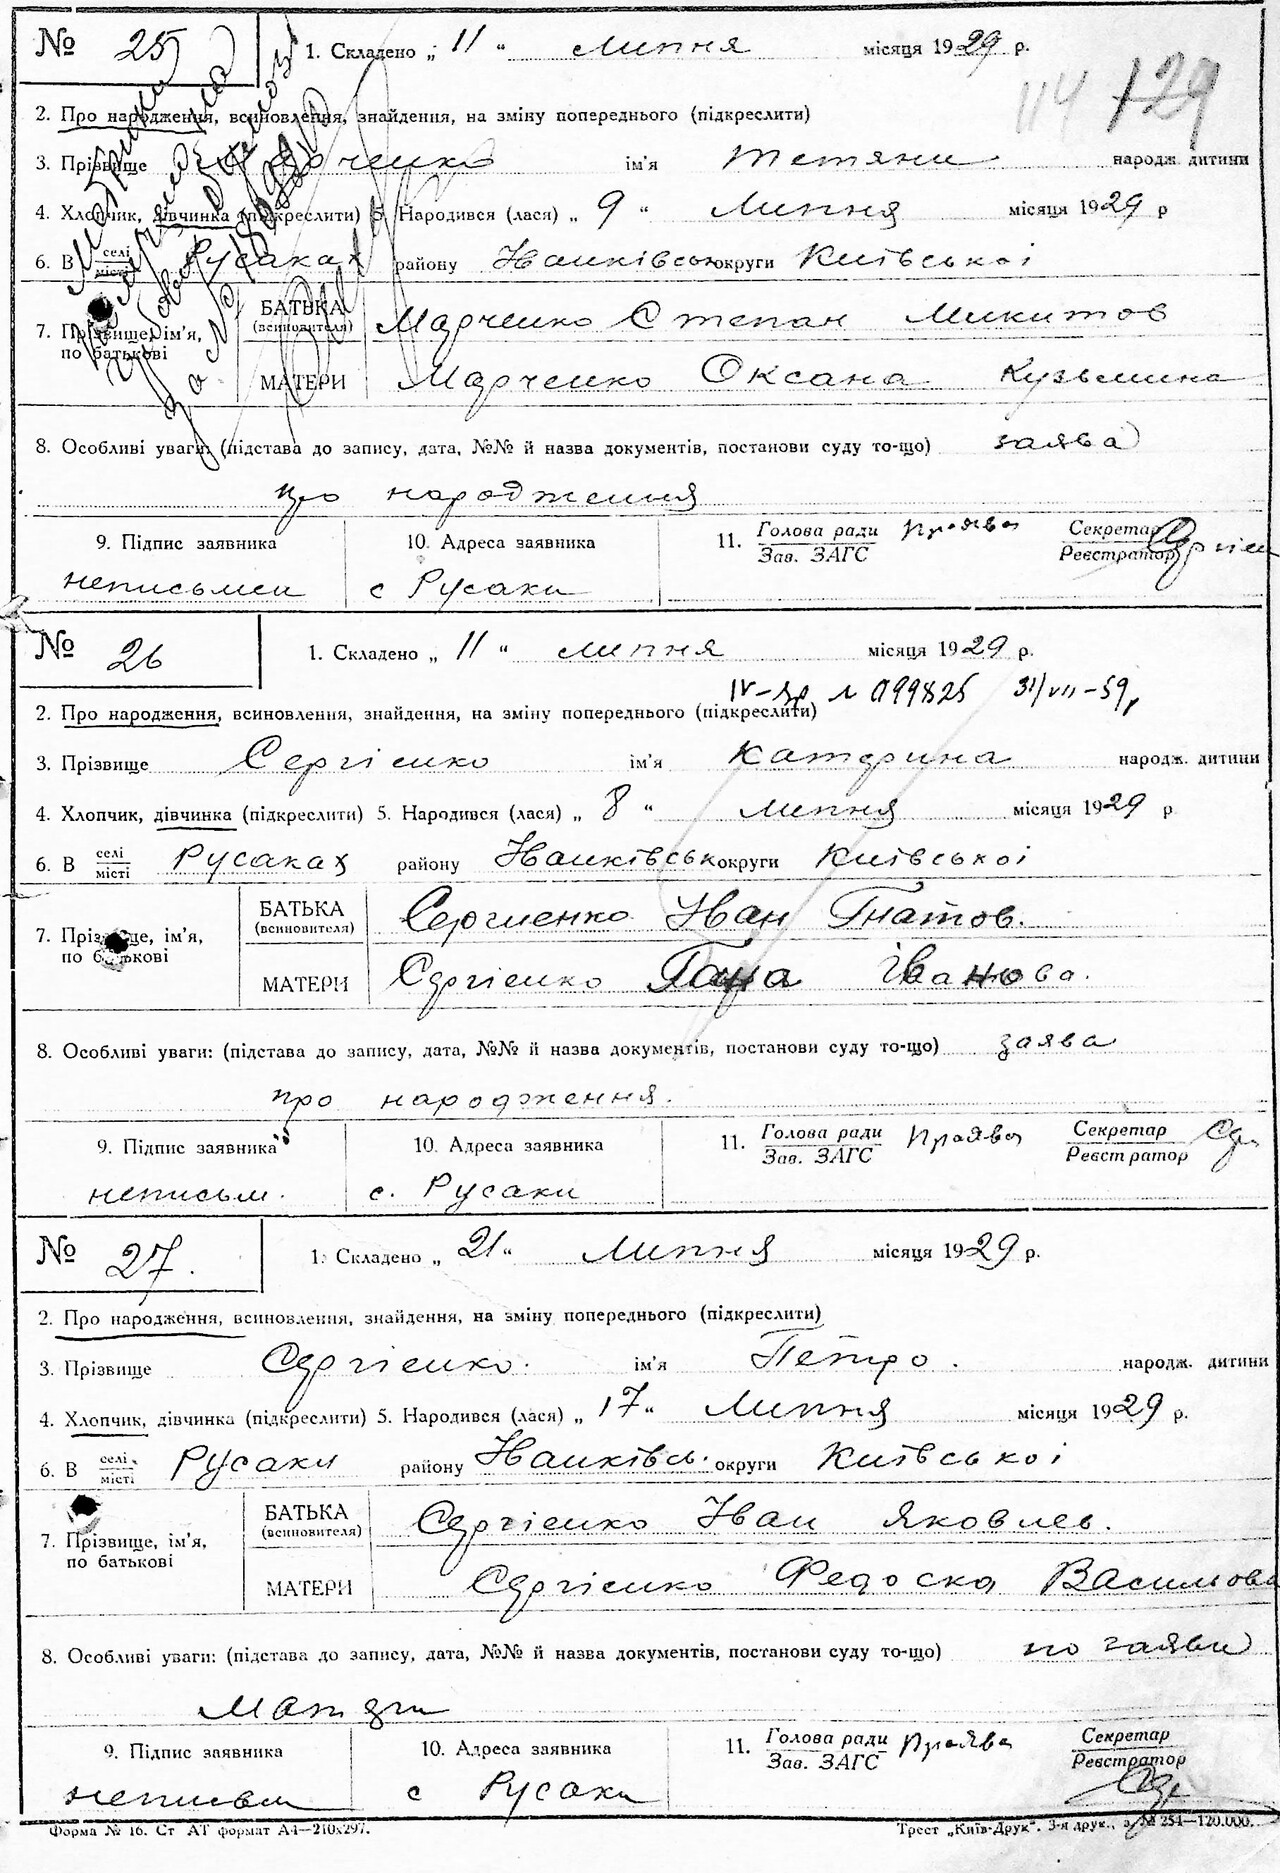 № 25
1. Складено „ 11 “ липня місяця 1929 р.
114 129
2. Про народження, всиновлення, знайдення, на зміну попереднього (підкреслити)
3. Прізвище Марченко ім'я Тетяни народж. дитини
4. Хлопчик, дівчинка (підкреслити) 5. Народився (лася) „ 9 “ Липня місяця 1929 р
6. В селі/місті Русаках району Іванківськ округи Київської
7. Прізвище, ім'я, по батькові
БАТЬКА (всиновителя) Марченко Степан Микитов
МАТЕРИ Марченко Оксана Кузьмина
8. Особливі уваги: (підстава до запису, дата, №№ й назва документів, постанови суду то-що) заява
про народження
9. Підпис заявника 10. Адреса заявника 11. Голова ради Зав. ЗАГС Секретар Реєстратор
неписьмен с Русаки
№ 26
1. Складено „ 11 “ липня місяця 1929 р.
099825 31/VII-59р
2. Про народження, всиновлення, знайдення, на зміну попереднього (підкреслити)
3. Прізвище Сергієнко ім'я Катерина народж. дитини
4. Хлопчик, дівчинка (підкреслити) 5. Народився (лася) „ 8 “ липня місяця 1929 р
6. В селі/місті Русаках району Іванківськ округи Київської
7. Прізвище, ім'я, по батькові
БАТЬКА (всиновителя) Сергиенко Іван Гнатов.
МАТЕРИ Сергієнко Іванова.
8. Особливі уваги: (підстава до запису, дата, №№ й назва документів, постанови суду то-що) заява
про народження.
9. Підпис заявника 10. Адреса заявника 11. Голова ради Зав. ЗАГС Секретар Реєстратор
неписьм. с. Русаки
№ 27.
1. Складено „ 21 “ Липня місяця 1929 р.
2. Про народження, всиновлення, знайдення, на зміну попереднього (підкреслити)
3. Прізвище Сергієнко. ім'я Петро. народж. дитини
4. Хлопчик, дівчинка (підкреслити) 5. Народився (лася) „ 17 “ Липня місяця 1929 р.
6. В селі/місті Русаки району Іванківсь. округи Київської
7. Прізвище, ім'я, по батькові
БАТЬКА (всиновителя) Сергієнко Іван Яковлев.
МАТЕРИ Сергієнко Федоска Васильова
8. Особливі уваги: (підстава до запису, дата, №№ й назва документів, постанови суду то-що) по заяви
Матери
9. Підпис заявника 10. Адреса заявника 11. Голова ради Зав. ЗАГС Секретар Реєстратор
с Русаки
Форма № 16. Ст АТ формат А4—210х297.
Трест „Київ-Друк“. 3-я друк., з. № 254—120.000.